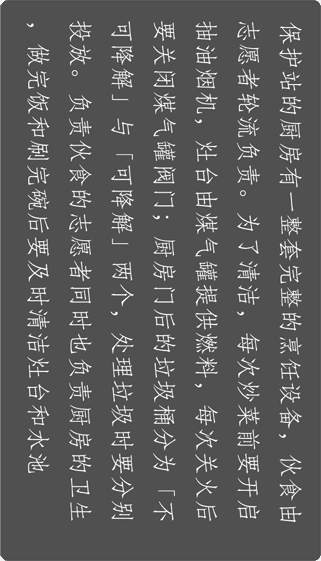 保护站的厨房有一整套完整的烹饪设备，伙食由
志愿者轮流负责。为了清洁，每次炒菜前要开启
抽油烟机，灶台由煤气罐提供燃料，每次关火后
要关闭煤气罐阀门；厨房门后的垃圾桶分为「不
可降解」与「可降解」两个，处理垃圾时要分别
投放。负责伙食的志愿者同时也负责厨房的卫生
，做完饭和刷完碗后要及时清洁灶台和水池